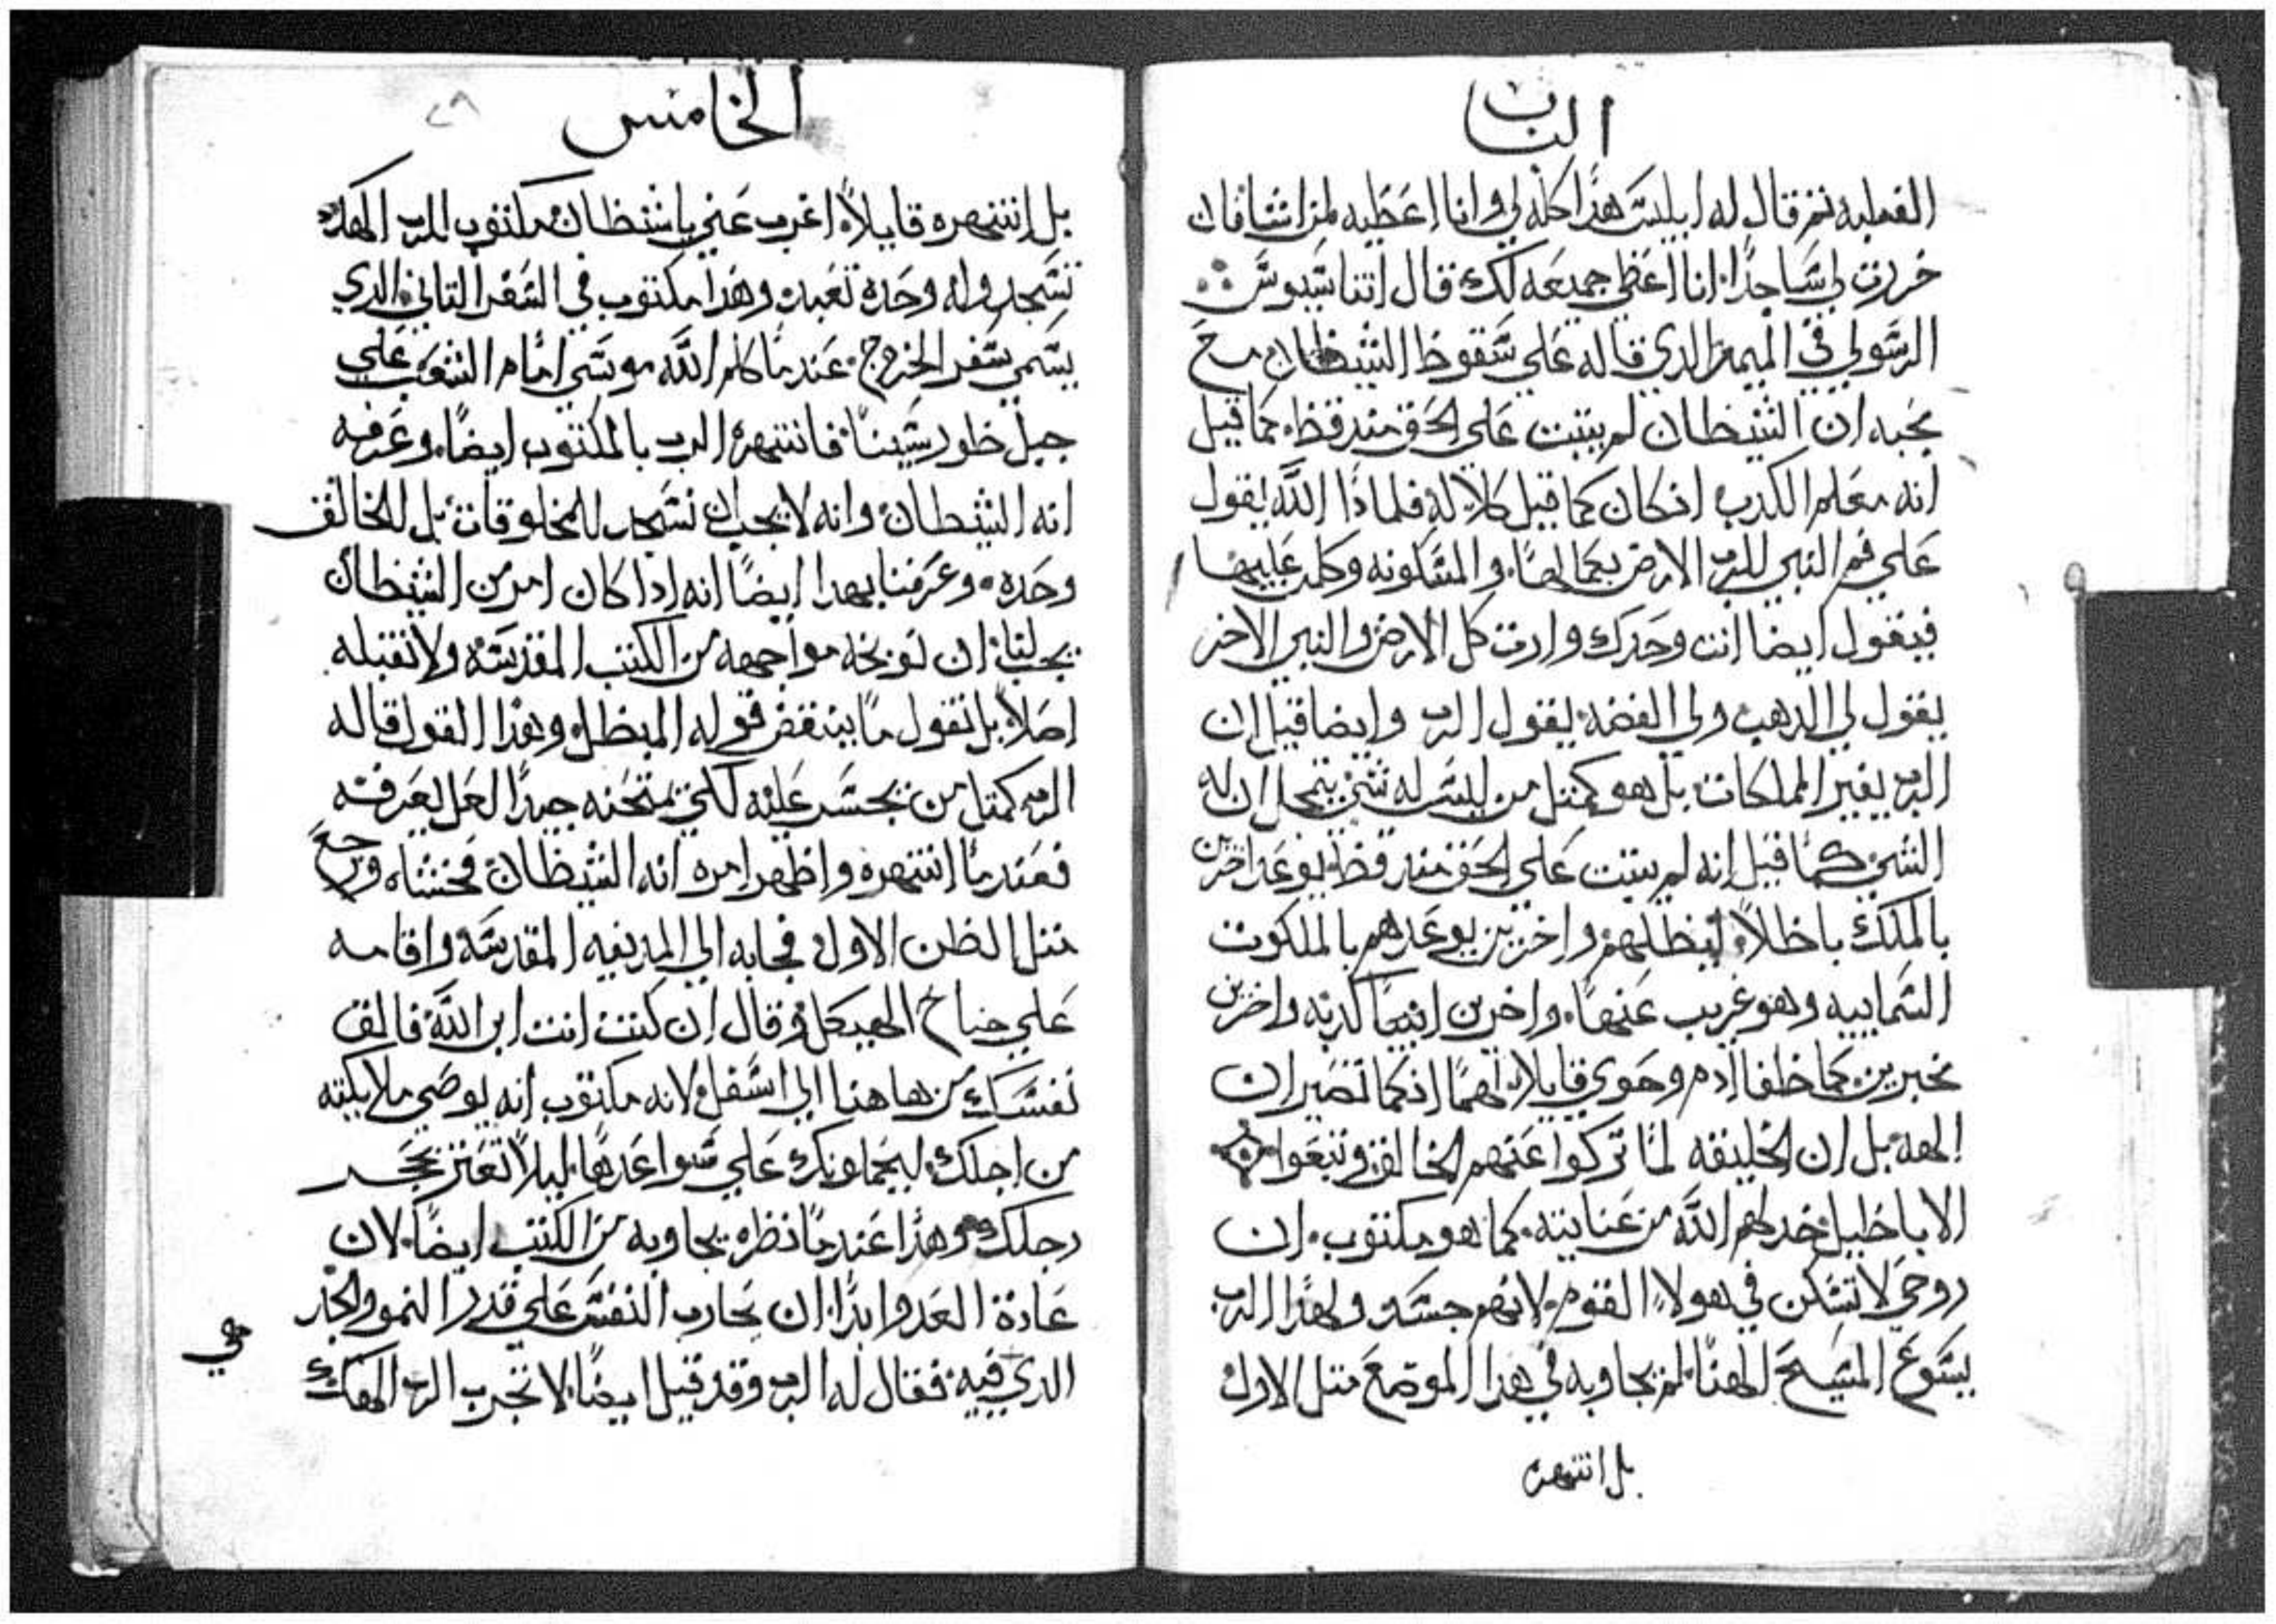 الباب
الفعليه ثم قال له ابليس هذا كله لي وانا اعطيه لمن اشا فان
خررت لي ساجدا انا اعطي جميعه لك قال اتناسيوس
الرسولي في الميمر الذي قاله علي سقوط الشيطان مع
بحبه ان الشيطان لم يتبت علي الحق منذ قط كما قيل
انه معلم الكدب ان كان كما قيل كلا له فلماذا الله يقول
علي فم النبي للرب الارض بكمالها والمسكونه وكلمن عليها
فيقول ايضا انت وحدك وارت كل الارض والنبي الاخر
يقول لي الدهب ولي الفضه يقول الرب وايضا قيل ان
الرب يغير المملكات بل هو كمتل من ليس له شي يتمحل ان له
الشي كما قيل انه لم يتبت علي الحق منذ قط يوعد اخرين
بالملك باطلا ليظلهم واخرين يوعدهم بالملكوت
السماييه وهو غريب عنها واخرين انبيا كدبه واخرين
مخبرين كما طغا ادم وحوي قايلا لهما انكما تصيران
الهه بل ان الخليقه لما تركوا عنهم الخالق وتبعوا
الاباطيل خدلهم الله من عنايته كما هو مكتوب ان
روحي لا تسكن في هولاء القوم لانهم جسد ولهذا الرب
يسوع المسيح الهنا لم يجاوبه في هدا الموضع متل الاول
بل انتهره
الخامس
٤٨
بل انتهره قايلا اغرب عني ياشيطان مكتوب للرب الهك
تسجد وله وحده تعبد وهذا مكتوب في السفر التاني الدي
يسمي سفر الخروج عندما كلم الله موسي امام الشعب علي
جبل طور سينا فانتهره الرب بالمكتوب ايضا وعرفه
انه الشيطان وانه لا يجب ان نسجد للمخلوقات بل للخالق
وحده وعرفنا بهدا ايضا انه ادا كان امر من الشيطان
يجب لنا ان نوبخه مواجهه من الكتب المقدسه ولا نقبله
اصلا بل نقول ما ينقض قوله المبطل وهذا القول قاله
الرب كمتل من يجسر عليه لكي يمتحنه جيدا لعل يعرفه
فعندما انتهره واظهر امره انه الشيطان فخشاه ورجع
متل الظن الاول فجابه الي المدينه المقدسه واقامه
علي جناح الهيكل وقال ان كنت انت ابن الله فالق
نفسك من هاهنا الي اسفل لانه مكتوب انه يوصي ملايكته
من اجلك ليحملونك علي سواعدها ليلا تعتر بحجر
رجلك وهذا عندما نظره يجاوبه من الكتب ايضا لان
عادة العدو ابدا ان يحارب النفس علي قدر النمو والحار
الدي فيه فقال له الرب وقد قيل ايضا لا تجرب الرب الهك